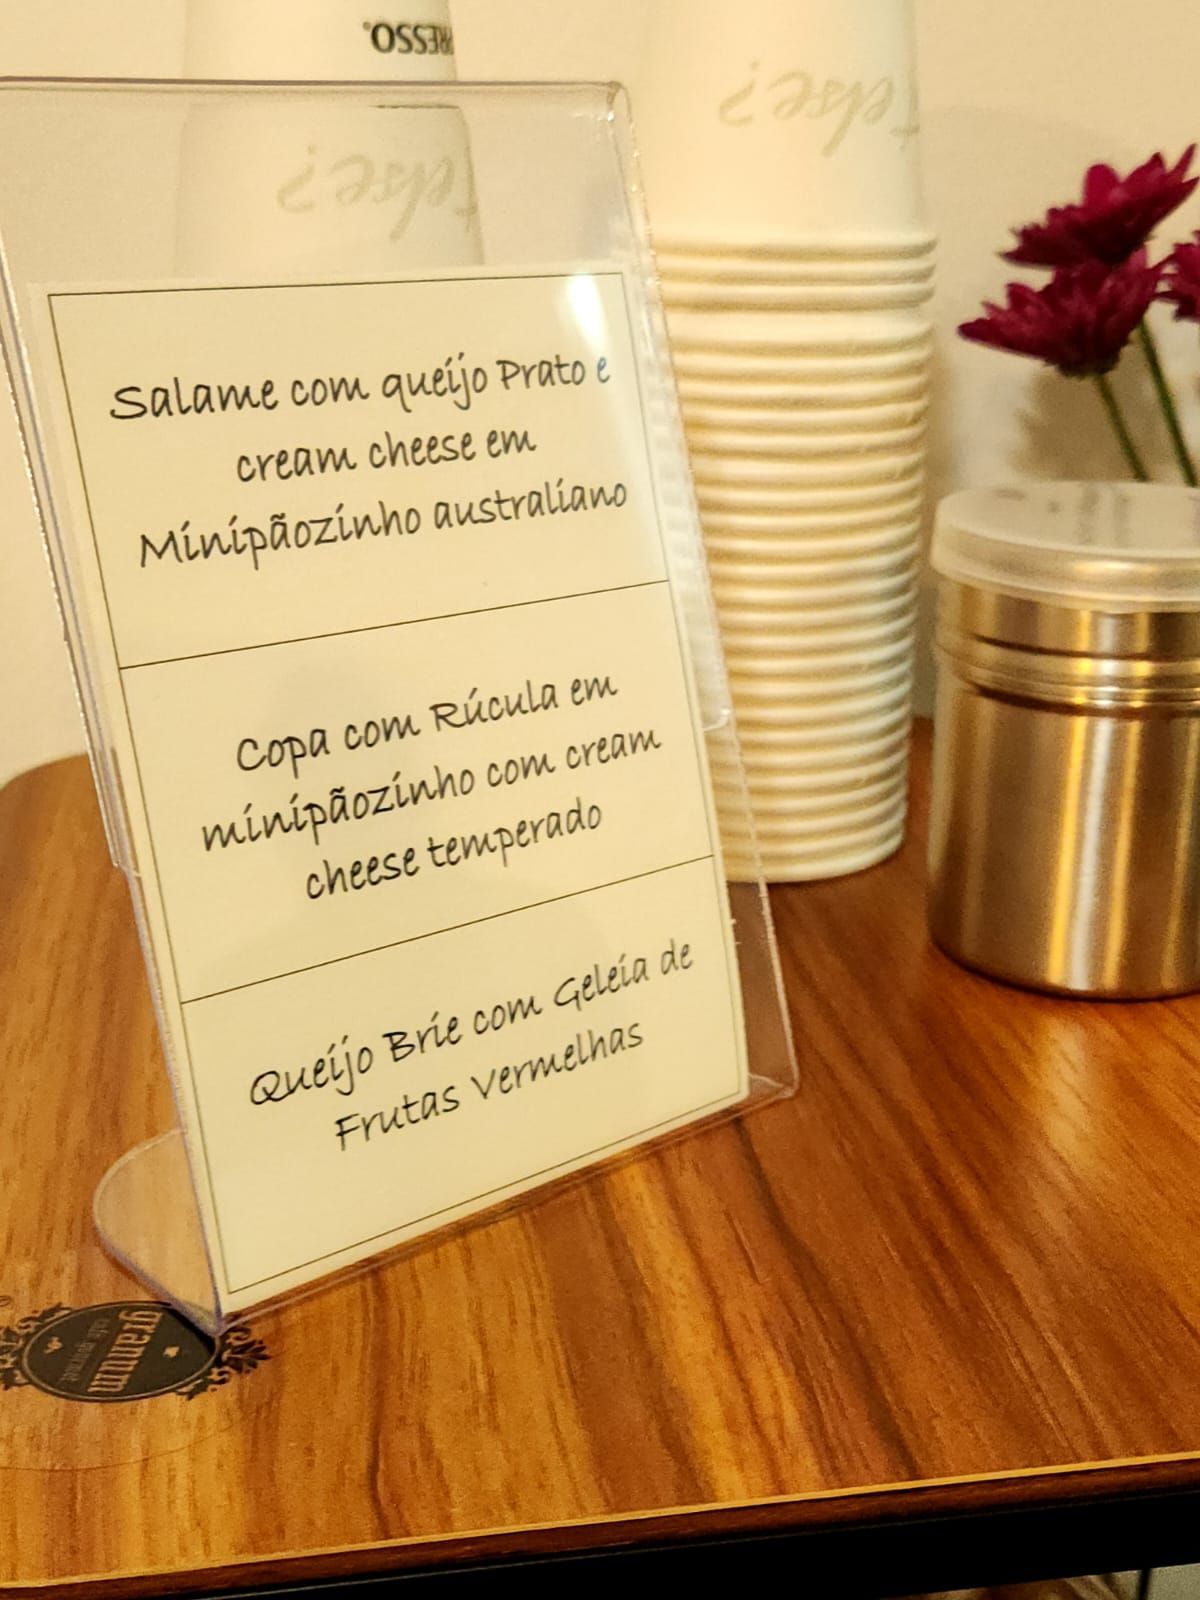 RESSO.
else?
else?
Salame com queijo Prato e
cream cheese em
Minipãozinho australiano
Copa com Rúcula em
minipãozinho com cream
cheese temperado
Queijo Brie com Geleia de
Frutas Vermelhas
gramm